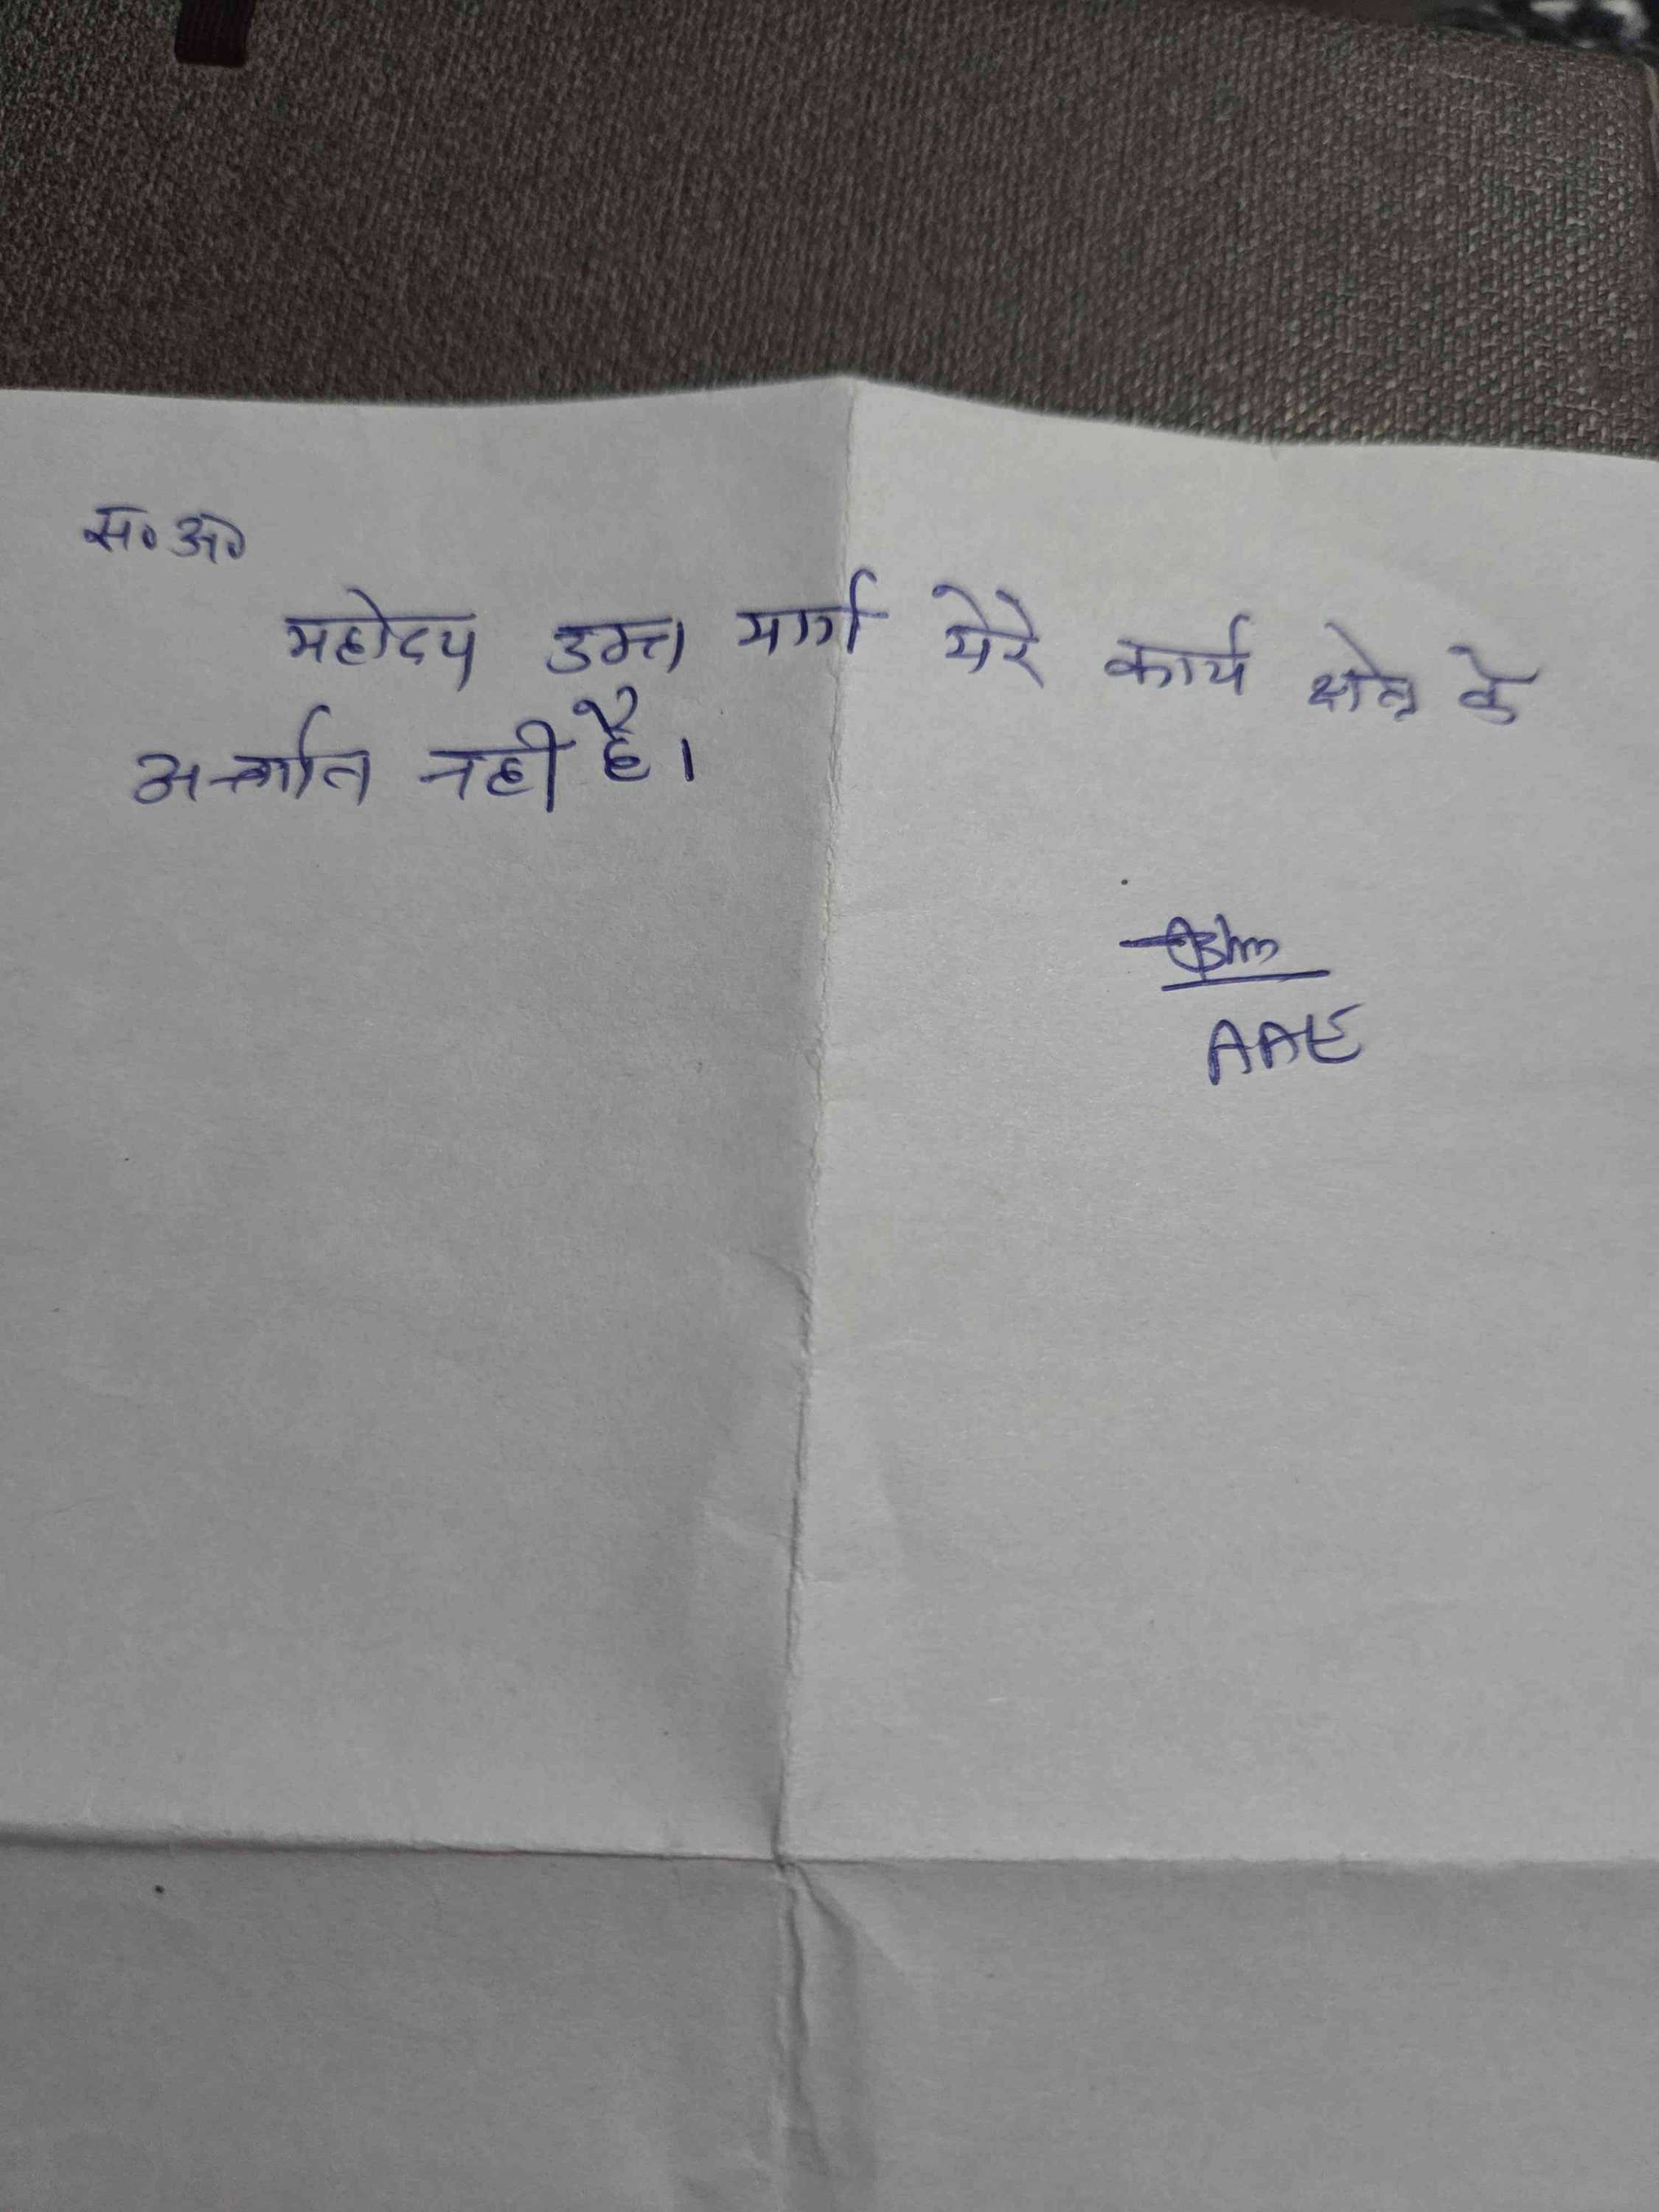 स॰अ॰
महोदय उक्त मार्ग मेरे कार्य क्षेत्र के
अर्न्तगत नही है।
AAE